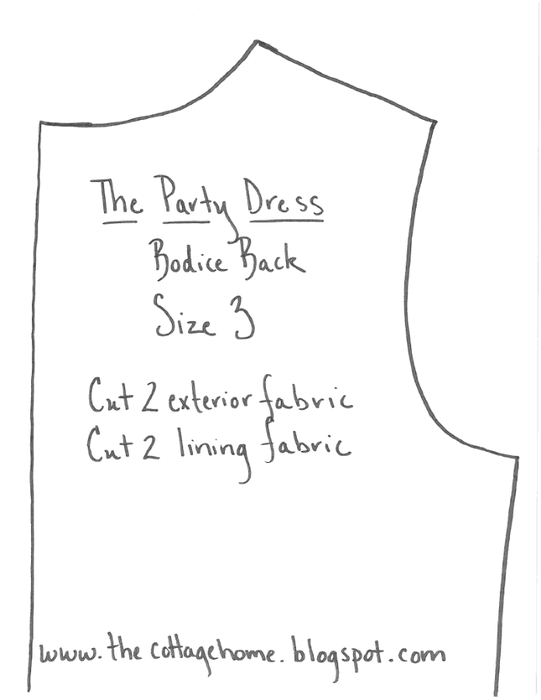 The Party Dress
Bodice Back
Size 3
Cut 2 exterior fabric
Cut 2 lining fabric
www.thecottagehome.blogspot.com